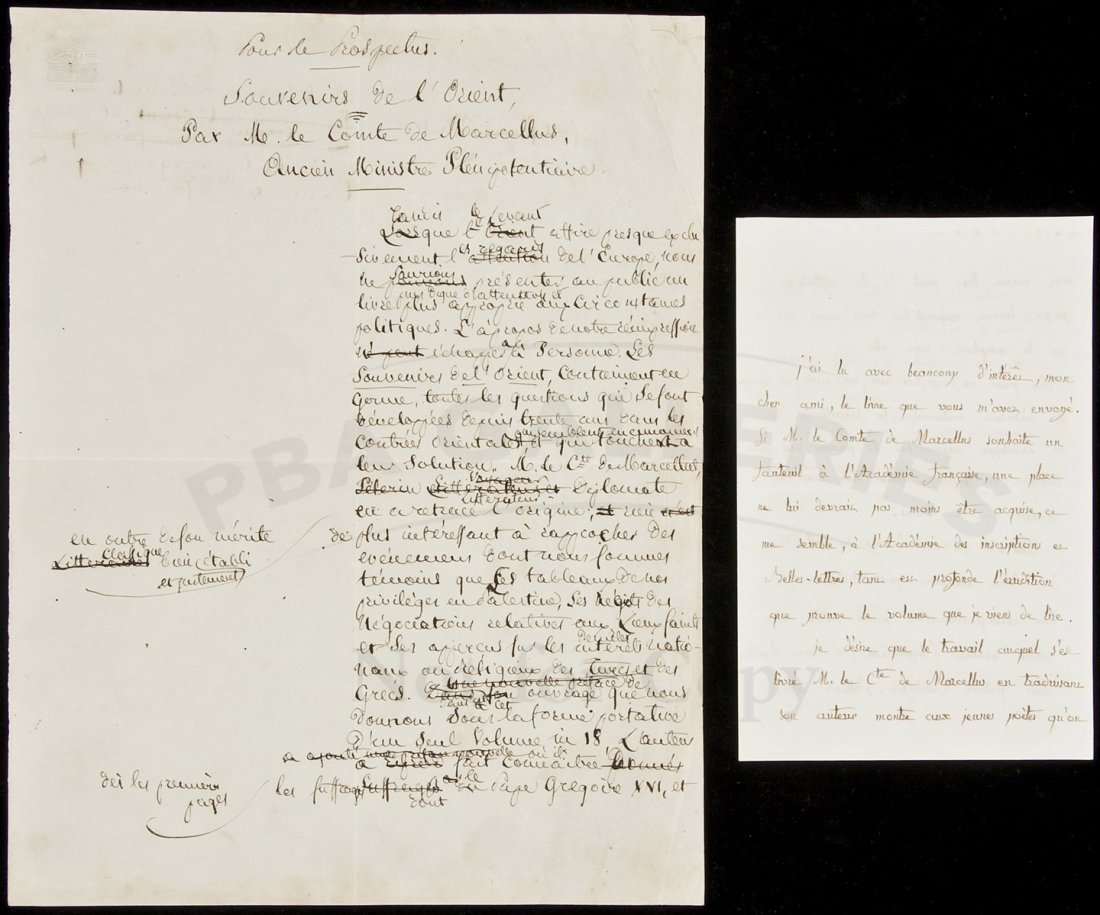 Pour le Prospectus.
Souvenirs de l'Orient,
Par M. le Comte de Marcellus,
Ancien Ministre Plénipotentiaire.
Tandis le Levant
Lorsque l'Orient attire presque exclu
-sivement les regards l'attention de l'Europe, nous
ne saurions pouvons présenter au public un
plus digne d'attention et
livre plus approprié aux circonstances
politiques. L'àpropos de notre réimpression
n'a échappé à Personne. Les
Souvenirs de l'Orient, contiennent en
Germe, toutes les questions qui se sont
développées depuis trente ans dans les
contrées orientales, et qui
qui semblent encore
leur solution. M. le Cte de Marcellus,
Pèlerin Voyageur Littérateur et diplomate
Littérateur
en a retracé l'origine; et rien n'est
en outre de son mérite
classique
Littéraire bien établi
et justement
de plus intéressant à rapprocher des
événemens dont nous sommes
témoins que les tableaux de nos
privilèges en Palestine, ses récits des
Négociations relatives aux Lieux saints
et ses apperçus sur les intérêts natio-
naux ou religieux des Turcs et des
Grecs. une nouvelle préface de
Dans son ouvrage que nous
dans cet
donnons sous la forme portative
D'un seul Volume in 18, L'auteur
a ajouté une préface nouvelle où il
a fait connaître
dès les premières
pages
les suffrages suffrages du Pape Grégoire XVI, et
dont
j'ai lu avec beaucoup d'intérêt, mon
cher ami, le livre que vous m'avez envoyé.
Si M. le Comte de Marcellus souhaite un
fauteuil à l'Académie française, une place
ne lui devrait pas moins être acquise, ce
me semble, à l'Académie des inscriptions et
Belles-lettres, tant est profonde l'érudition
que prouve le volume que je viens de lire.
je désire que le travail auquel s'est
livré M. le Cte de Marcellus en traduisant
son auteur montre aux jeunes poëtes qu'on
PBA GALLERIES
Copy